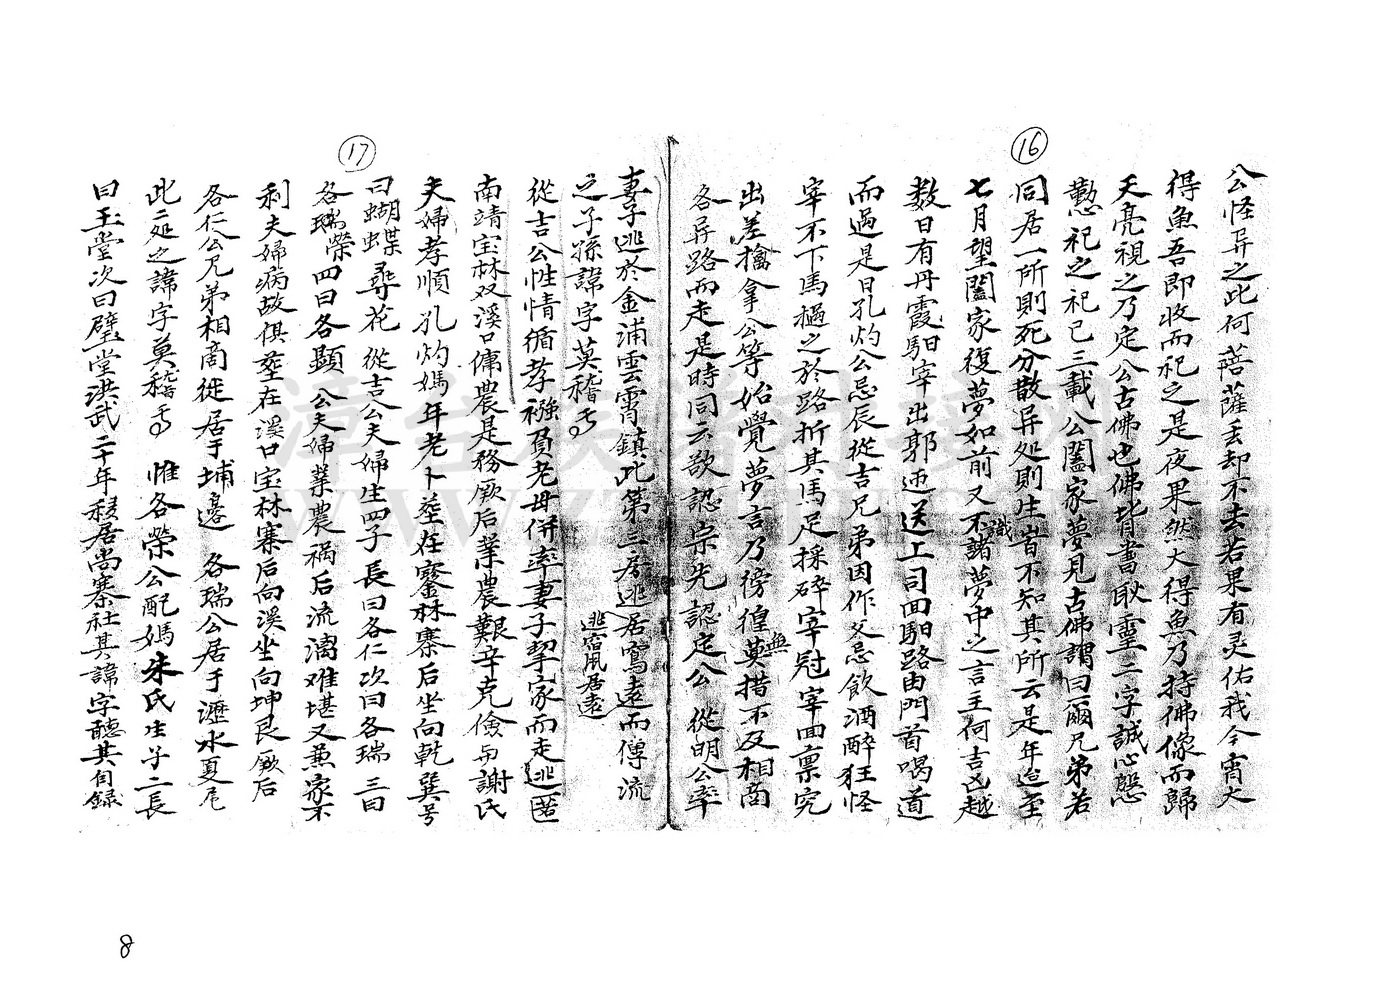 16
公怪异之此何菩薩丢却不去若果有灵佑我今宵大
得魚吾即收而祀之是夜果然大得魚乃持佛像而歸
天亮視之乃定公古佛也佛背書耿靈二字誠心慇
懃祀之祀已三載公闔家夢見古佛謂曰爾兄弟若
同居一所則死分散异处則生皆不知其所云是年迨至
七月望闔家復夢如前又不識諸夢中之言主何吉凶越
数日有丹霞馹宰出郭迎送上司回馹路由門首喝道
而過是日孔灼公忌辰從吉兄弟因作父忌飲酒醉狂怪
宰不下馬撾之於路折其馬足採碎宰冠宰回禀究
出差擒拿公等始覺夢言乃徬徨無莫措不及相商
各异路而走是時同云欲認宗先認定公 從明公率
17
妻子逃於金浦雲霄鎮此第三房逃居鸞遠而傳流
之子孫諱字莫稽焉
逃宿鳳居遠
從吉公性情循孝襁負老母併率妻子挈家而走逃匿
南靖宝林双溪口傭農是務厥后業農艱辛克儉与謝氏
夫婦孝順孔灼媽年老卜塟在寳林寨后坐向乾巽号
曰蝴蝶尋花 從吉公夫婦生四子長曰各仁次曰各瑞三曰
各瑞榮四曰各顯 公夫婦業農禍后流漓难堪又兼家不
利夫婦病故俱塟在溪口宝林寨后向溪坐向坤艮厥后
各仁公兄弟相商徙居于埔邊 各瑞公居于瀝水夏尾
此二延之諱字莫稽焉 惟各榮公配媽朱氏生子二長
曰玉堂次曰璧堂洪武二十年移居尚寨社其諱字聽其自錄
8